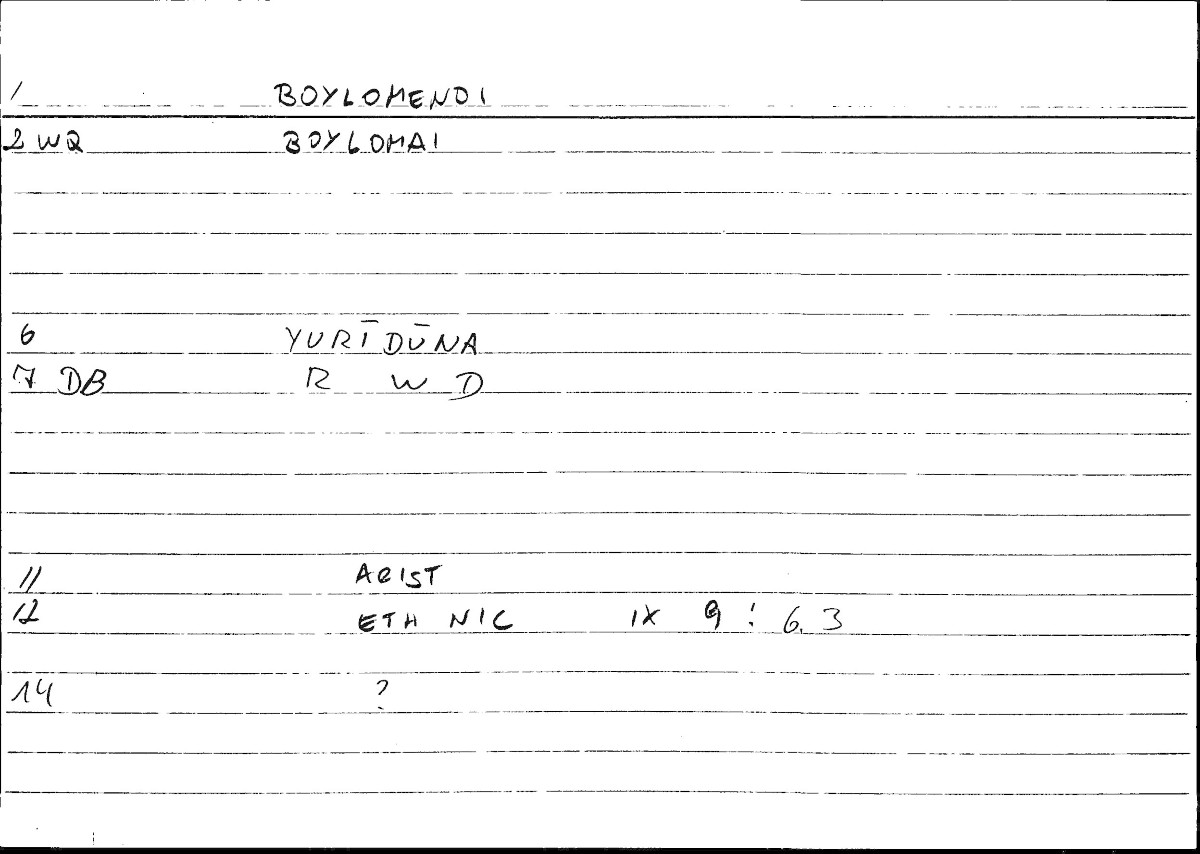 1 BOYLOMENOI
2 WQ BOYLOMAI
6 YURĪDŪNA
7 DB R W D
11 ARIST
12 ETH NIC IX 9 : 6.3
14 ?